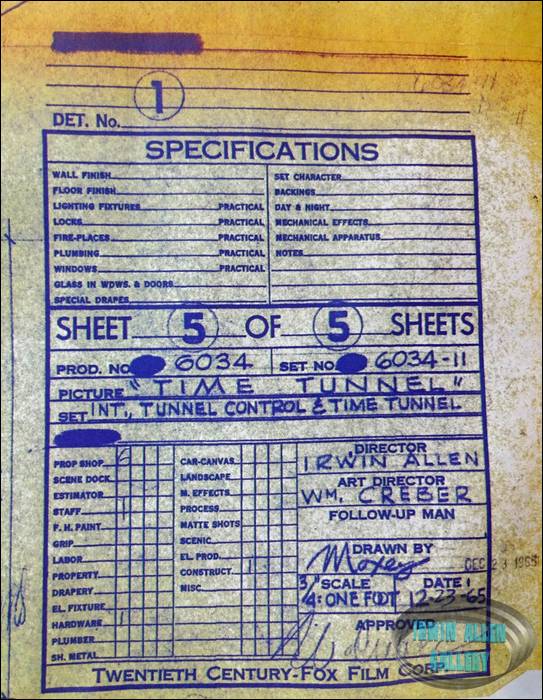 1
DET. No.
SPECIFICATIONS
WALL FINISH
FLOOR FINISH
LIGHTING FIXTURES PRACTICAL
LOCKS PRACTICAL
FIRE-PLACES PRACTICAL
PLUMBING PRACTICAL
WINDOWS PRACTICAL
GLASS IN WDWS. & DOORS
SPECIAL DRAPES
SET CHARACTER
BACKINGS
DAY & NIGHT
MECHANICAL EFFECTS
MECHANICAL APPARATUS
NOTES
SHEET 5 OF 5 SHEETS
PROD. NO. 6034 SET NO. 6034-11
PICTURE "TIME TUNNEL"
SET INT., TUNNEL CONTROL & TIME TUNNEL
PROP SHOP 6
SCENE DOCK
ESTIMATOR
STAFF 1
F. H. PAINT
GRIP
LABOR
PROPERTY
DRAPERY
EL. FIXTURE
HARDWARE 1
PLUMBER
SH. METAL
CAR-CANVAS
LANDSCAPE
M. EFFECTS
PROCESS
MATTE SHOTS
SCENIC
EL. PROD.
CONSTRUCT. 1
MISC.
DIRECTOR
IRWIN ALLEN
ART DIRECTOR
WM. CREBER
FOLLOW-UP MAN
DRAWN BY
Moxey
DEC 23 1965
SCALE DATE
3/4: ONE FOOT 12-23-65
APPROVED
IRWIN ALLEN
GALLERY
TWENTIETH CENTURY-FOX FILM CORP.